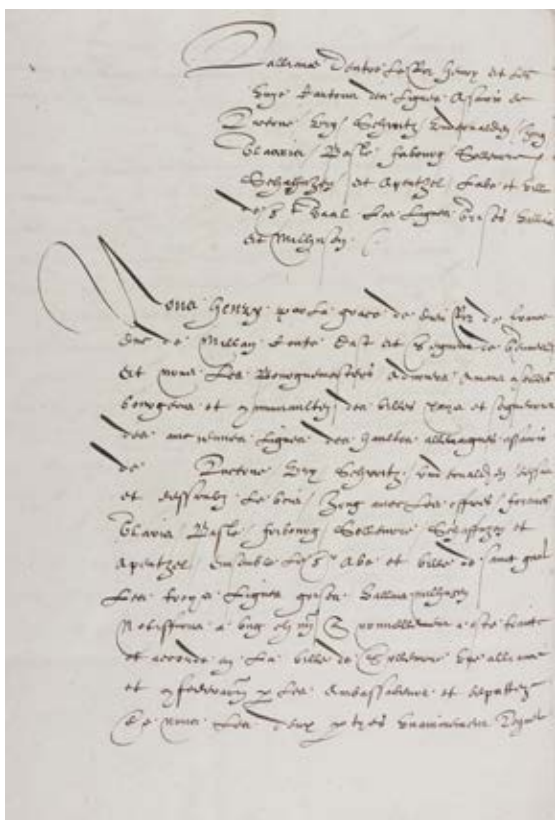 Lalliance Dentre Le Roy Henry et Les
unze Cantons des Ligues Assavoir de
Lucerne Ury Schwitz Underwalden Zug
Glarris Basle fribourg Solleurre
Schafhuzen et Apentzel Labe et ville
de St Gaal Les Ligues Grises Vallais
et Milhusen
Nous Henry par La grace de dieu Roy de france
duc de Millan Conte Dast et Seigneur de
Et nous Les Bourguemestres advoiers amans
bourgeois et communaultez des villes pays et seigneuries
des anciennes Ligues des haultes allemagnes assavoir
de Lucerne Ury Schwitz Underwalden dessus
et dessoubz Le bois Zug avec Les offices forains
Glaris Basle fribourg Solleurre Schaffuzen et
Apentzel Ensemble Les Sr Abe et ville de saint gaal
Les troys Ligues grises Vallais milhusen
a este traicte
et accorde en La ville de Solleurre une alliance
et confederation par Les Ambassadeurs et deputtez
De nous Les deux parties